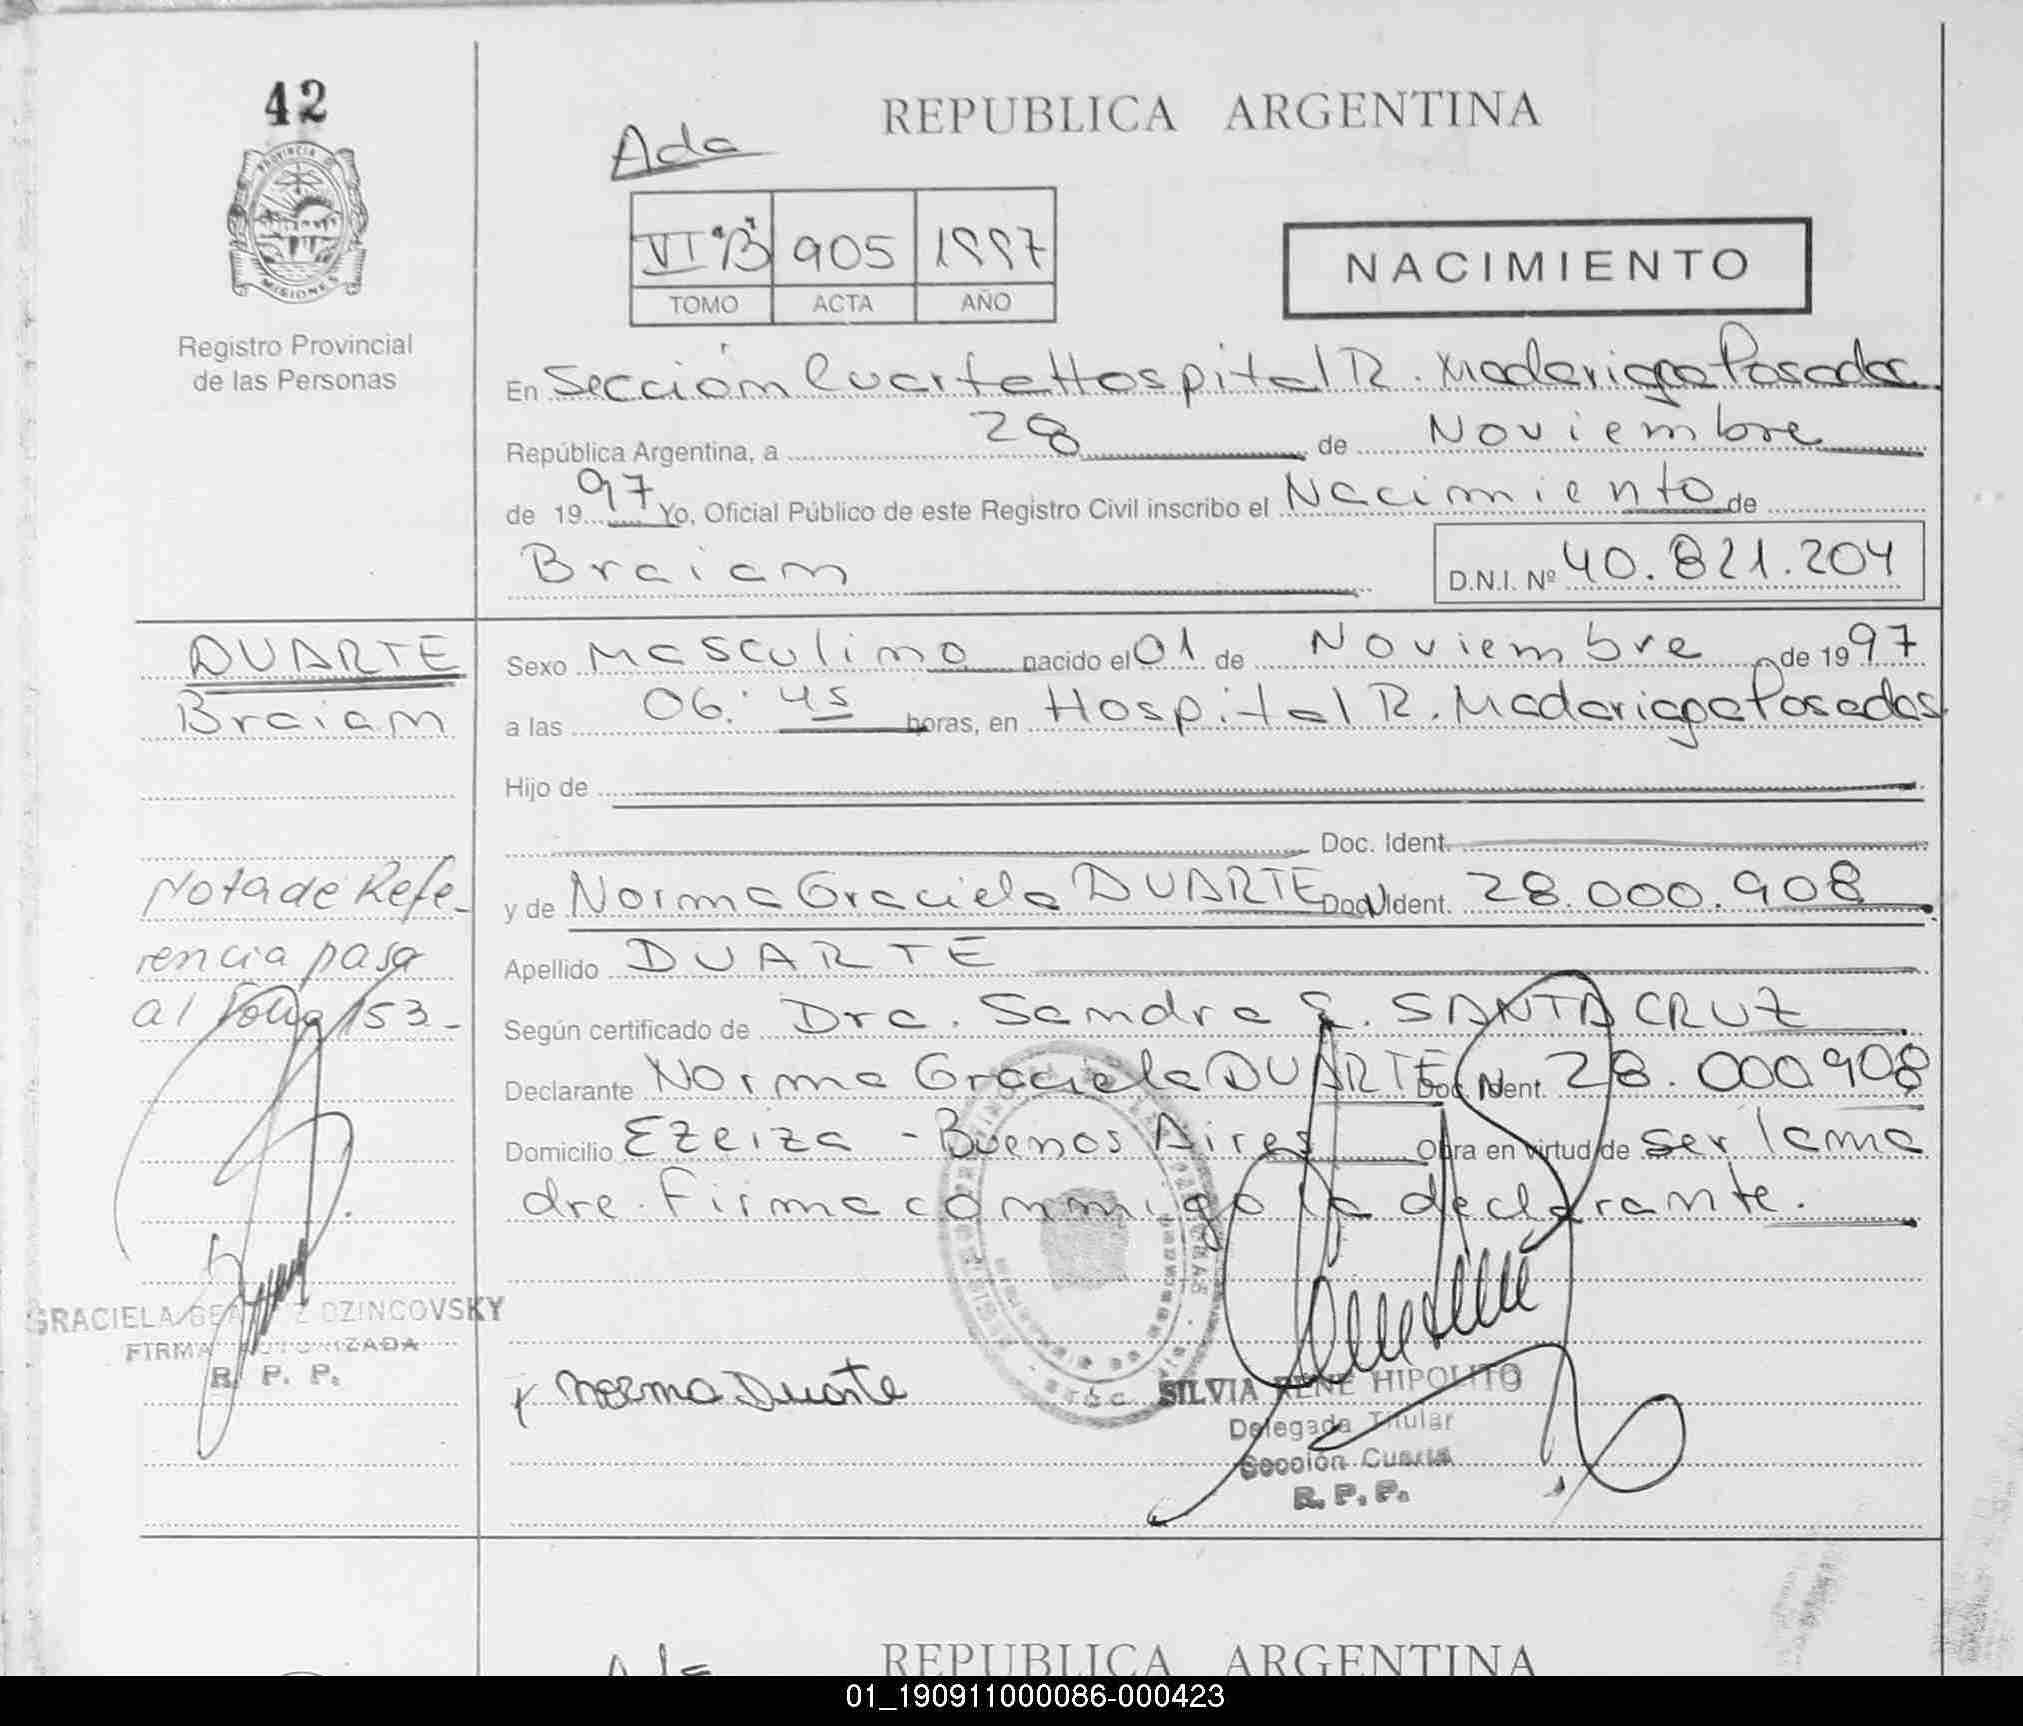 42
REPUBLICA ARGENTINA
Ada
PROVINCIA DE
MISIONES
VI "B" 905 1997
TOMO ACTA AÑO
NACIMIENTO
Registro Provincial
de las Personas
En Sección Cuarta Hospital R. Madariaga Posadas
República Argentina, a 28 de Noviembre
de 1997 Yo, Oficial Público de este Registro Civil inscribo el Nacimiento de
Braian
D.N.I. Nº 40.821.204
DUARTE
Braian
Sexo Masculino nacido el 01 de Noviembre de 1997
a las 06:45 horas, en Hospital R. Madariaga Posadas
Hijo de
Doc. Ident.
y de Norma Graciela DUARTE Doc. Ident. 28.000.908
Apellido DUARTE
Según certificado de Dra. Sandra S. SANTA CRUZ
Declarante Norma Graciela DUARTE Doc. Ident. 28.000908
Domicilio Ezeiza - Buenos Aires Obra en virtud de ser la ma
dre. Firma conmigo la declarante.
Nota de Refe-
rencia pasa
al Folio 153-
GRACIELA DZINCOVSKY
FIRMA AUTORIZADA
R. P. P.
Norma Duarte
SILVIA RENE HIPOLITO
Delegada Titular
Sección Cuarta
R. P. P.
REPUBLICA ARGENTINA
01_190911000086-000423